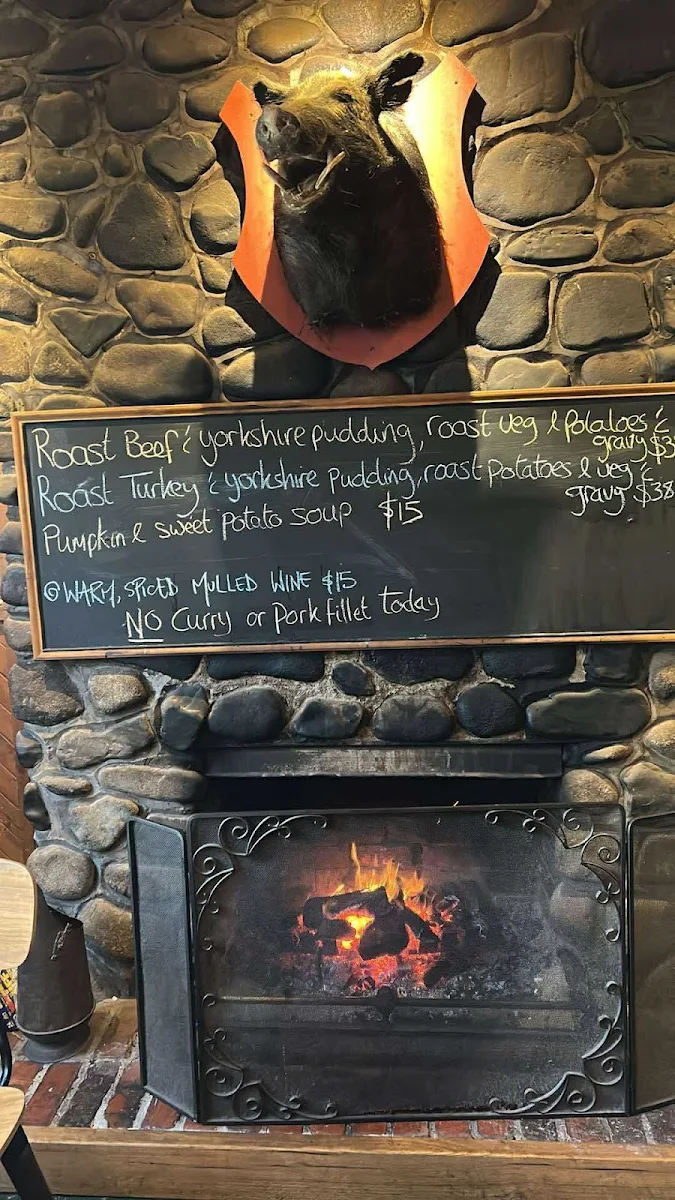 Roast Beef & yorkshire pudding, roast veg & Potatoes &
gravy $3
Roast Turkey & yorkshire pudding, roast potatoes & veg &
gravy $38
Pumpkin & sweet potato soup $15
@ WARM, SPICED MULLED WINE $15
NO Curry or Pork fillet today